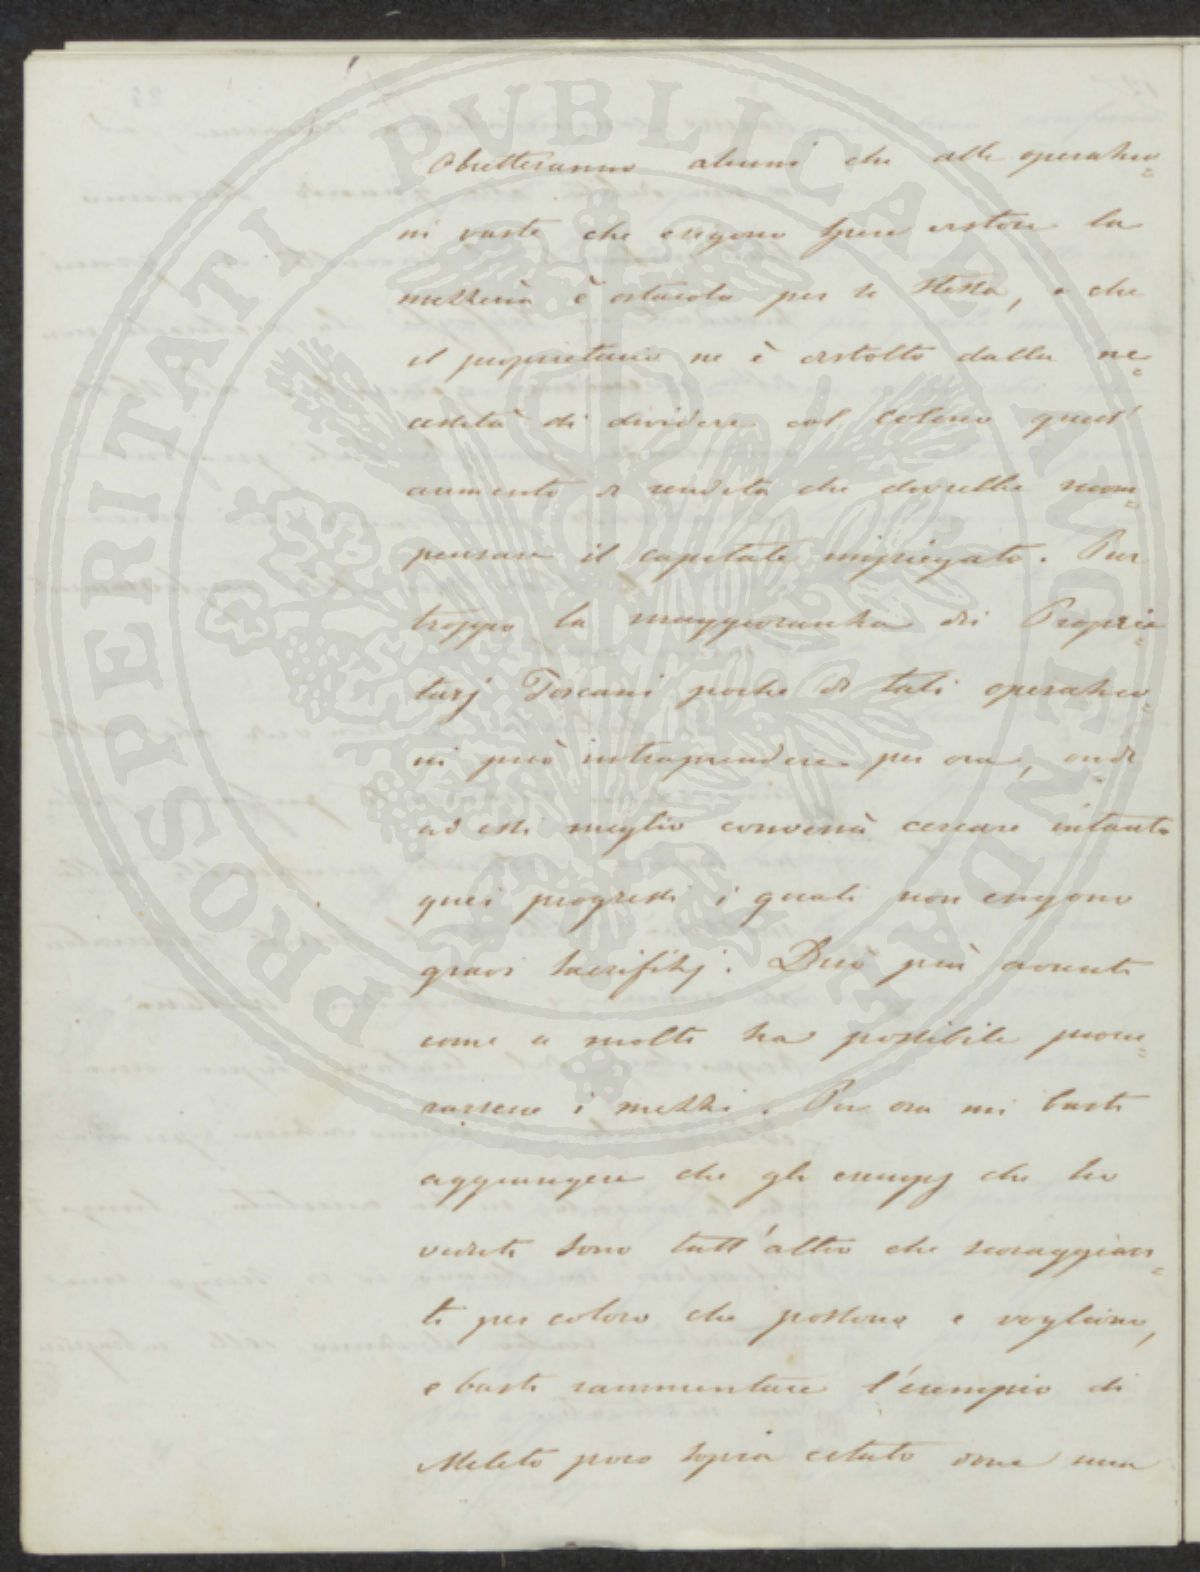 Obietteranno alcuni che alle operazio=
ni vaste che esigono spese vistose la
mezzeria è ostacolo per se stessa, e che
il proprietario ne è distolto dalla ne=
cessità di dividere col colono quest'
aumento di rendita che dovrebbe ricom=
pensare il capitale impiegato. Pur
troppo la maggioranza dei Proprie=
tarj Toscani poche di tali operazio=
ni può intraprendere per ora, onde
ad essi meglio converrà cercare intanto
quei progressi i quali non esigono
gravi sacrifizj. Dirò più avanti
come a molti sia possibile procu=
rarsene i mezzi. Per ora mi basti
aggiungere che gli esempj che ho
veduti sono tutt'altro che scoraggian=
ti per coloro che possono e vogliono,
e basti rammentare l'esempio di
Meleto poco sopra citato dove una
PROSPERITATI PUBLICAE AUGENDAE